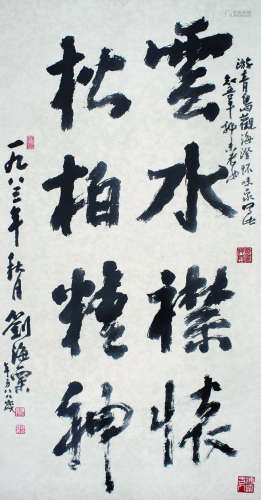 游青島觀海澄懷味
雲水襟懷
松柏精神
一九八三年秋月劉海粟
年方八八歲